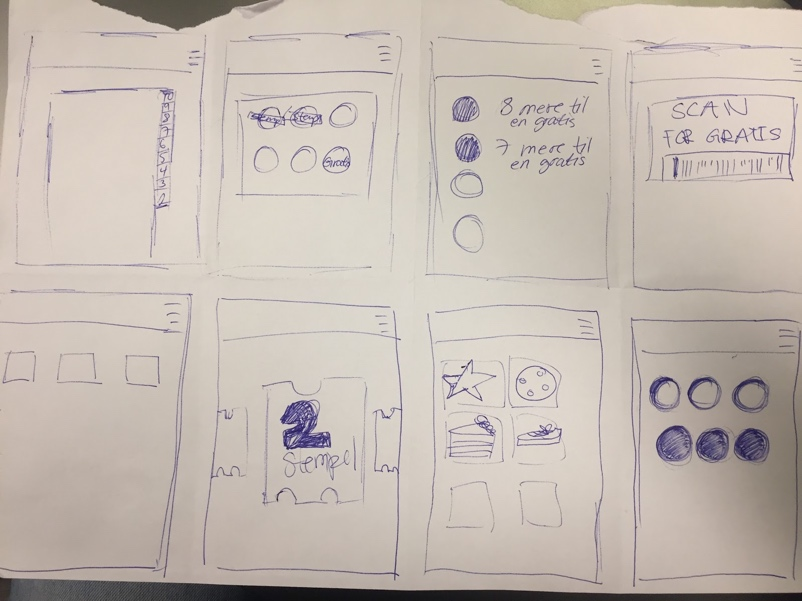 10
9
8
7
6
5
4
3
2
Stemp
Stemp
Gratis
8 mere til
en gratis
7 mere til
en gratis
SCAN
FOR GRATIS
2
Stempel